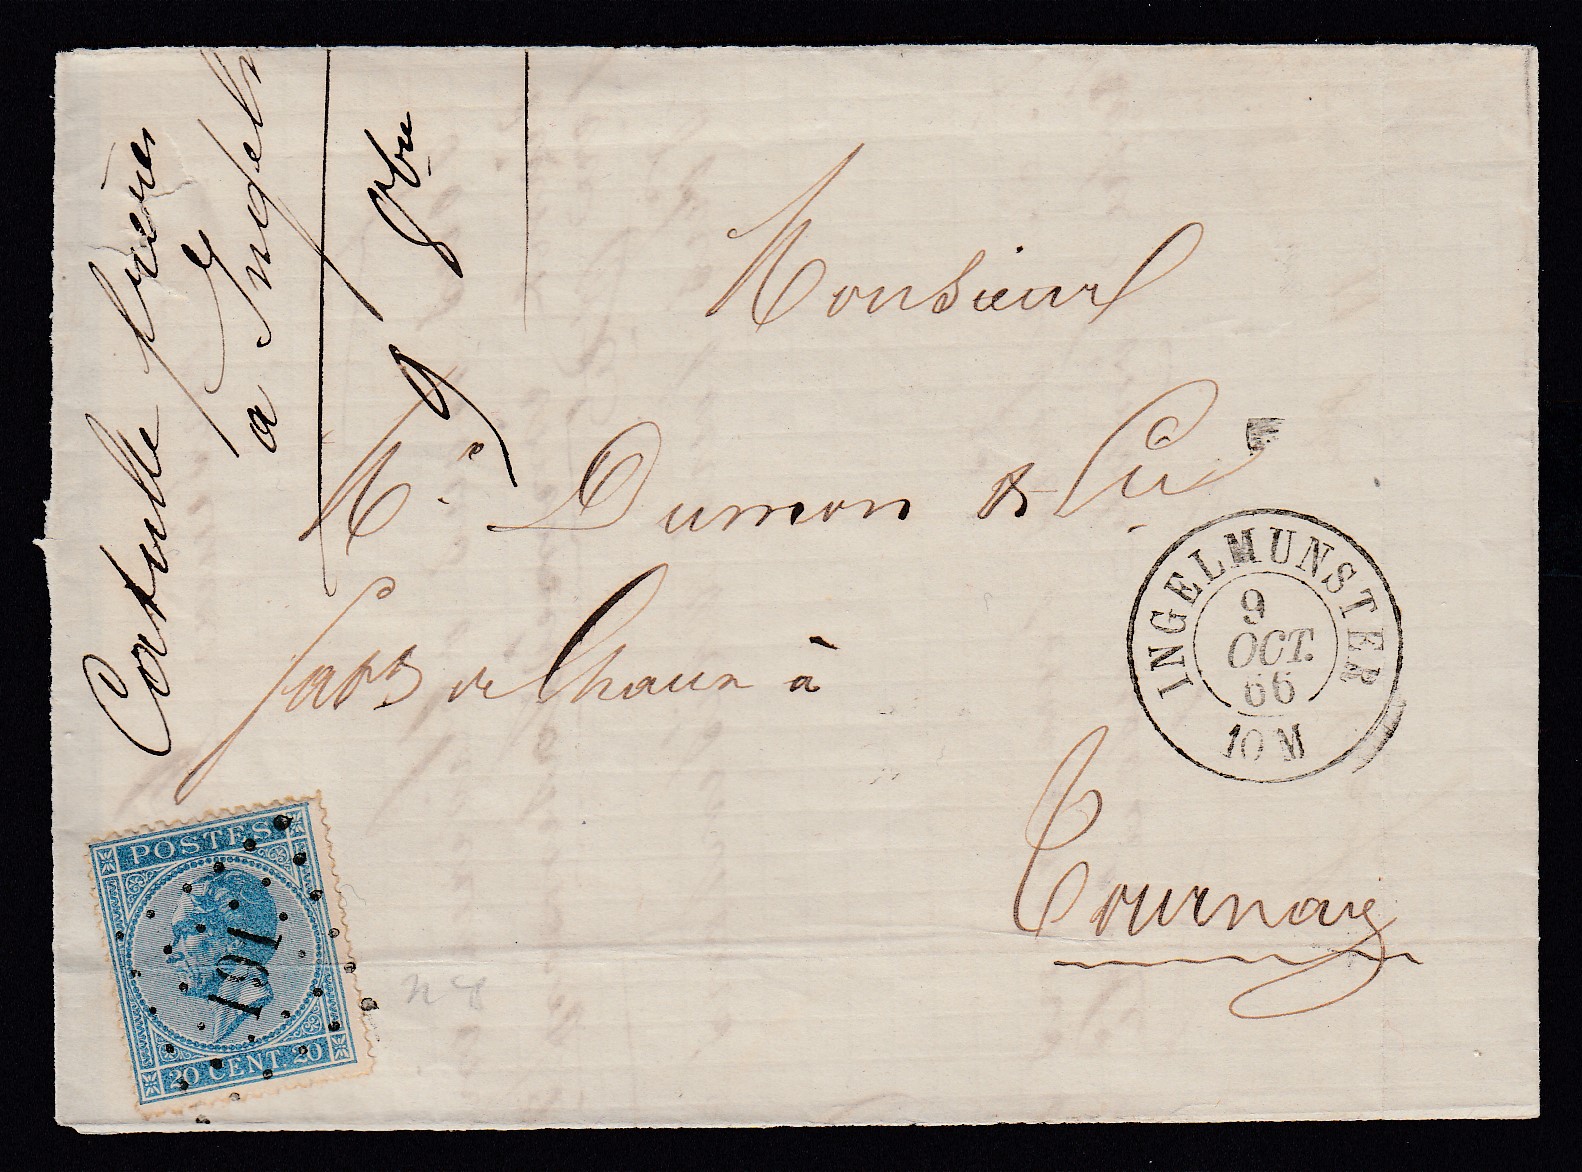 Monsieur
Mr. Dumon & Cie
fabts de Chaux à
Tournay
INGELMUNSTER
9
OCT.
66
10 M
POSTES
191
20 CENT. 20
frères
à Ingelm
9 8bre